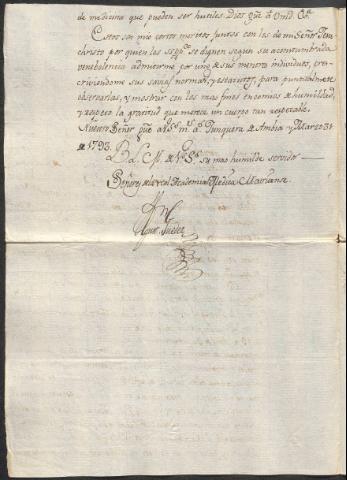 de medicina que puedan ser hutiles Dios gue. a Vmd. 
Estos son mis cortos meritos juntos con los de mi Señor Jesu
christo por quien les sup.co se dignen segun su acostumbrada
venebolencia admitirme por uno de sus menores individuos, pres-
criviendome sus savias normas, y estatutos, para puntualmente
observarlas, y mostrar con los mas finos encomios de humildad,
y respeto la gratitud que merece un cuerpo tan respetable.
Nuestro Señor gue. a VSS. m. a. Junquera de Ambia y Marzo 31
de 1793.
B. L. M. de VSS. su mas humilde servidor
Señores de la real Academia Medica Matritense.